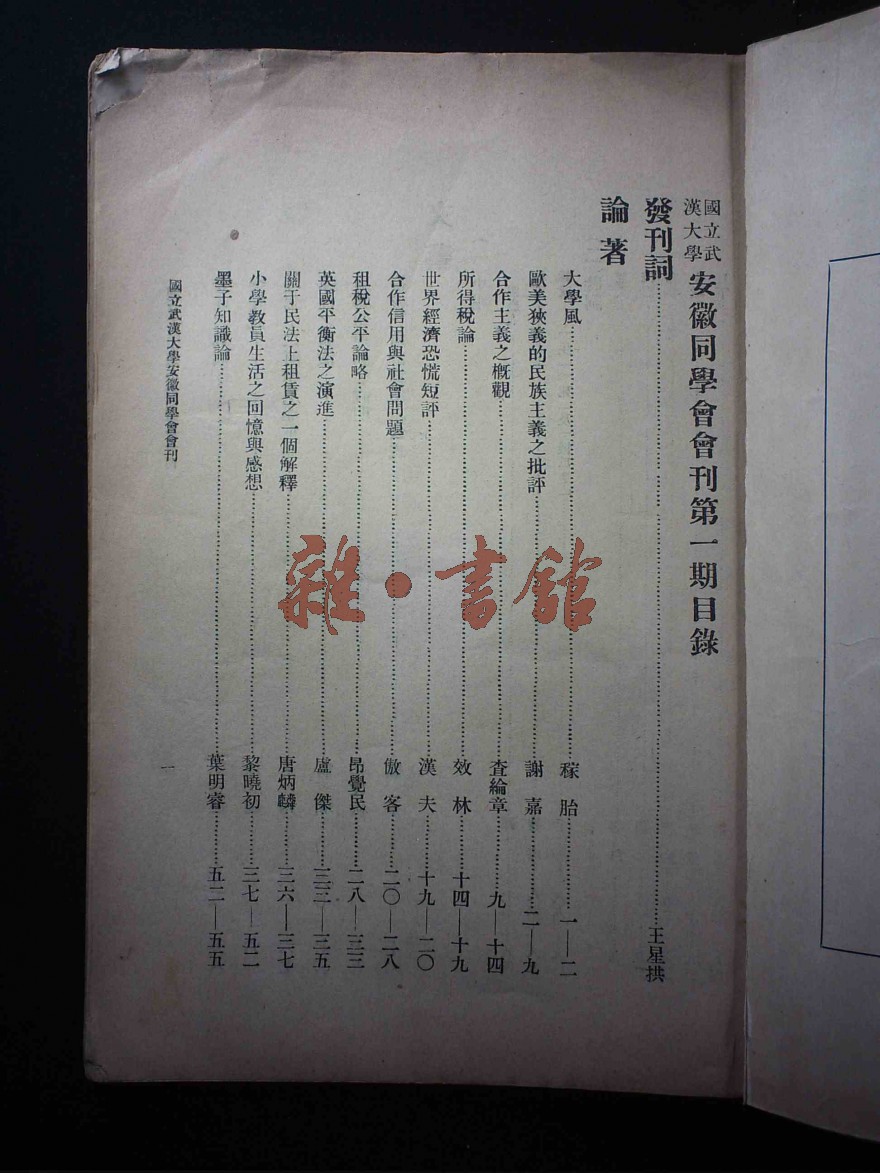 國立武漢大學安徽同學會會刊第一期目錄
發刊詞……王星拱
論著
大學風……稼胎……一—二
歐美狹義的民族主義之批評……謝嘉……二—九
合作主義之概觀……查綸章……九—十四
所得稅論……效林……十四—十九
世界經濟恐慌短評……漢夫……十九—二〇
合作信用與社會問題……傲客……二〇—二八
租稅公平論略……昂覺民……二八—三三
英國平衡法之演進……盧傑……三三—三五
關于民法上租賃之一個解釋……唐炳麟……三六—三七
小學教員生活之回憶與感想……黎曉初……三七—五二
墨子知識論……葉明睿……五二—五五
國立武漢大學安徽同學會會刊
一
雜·書館